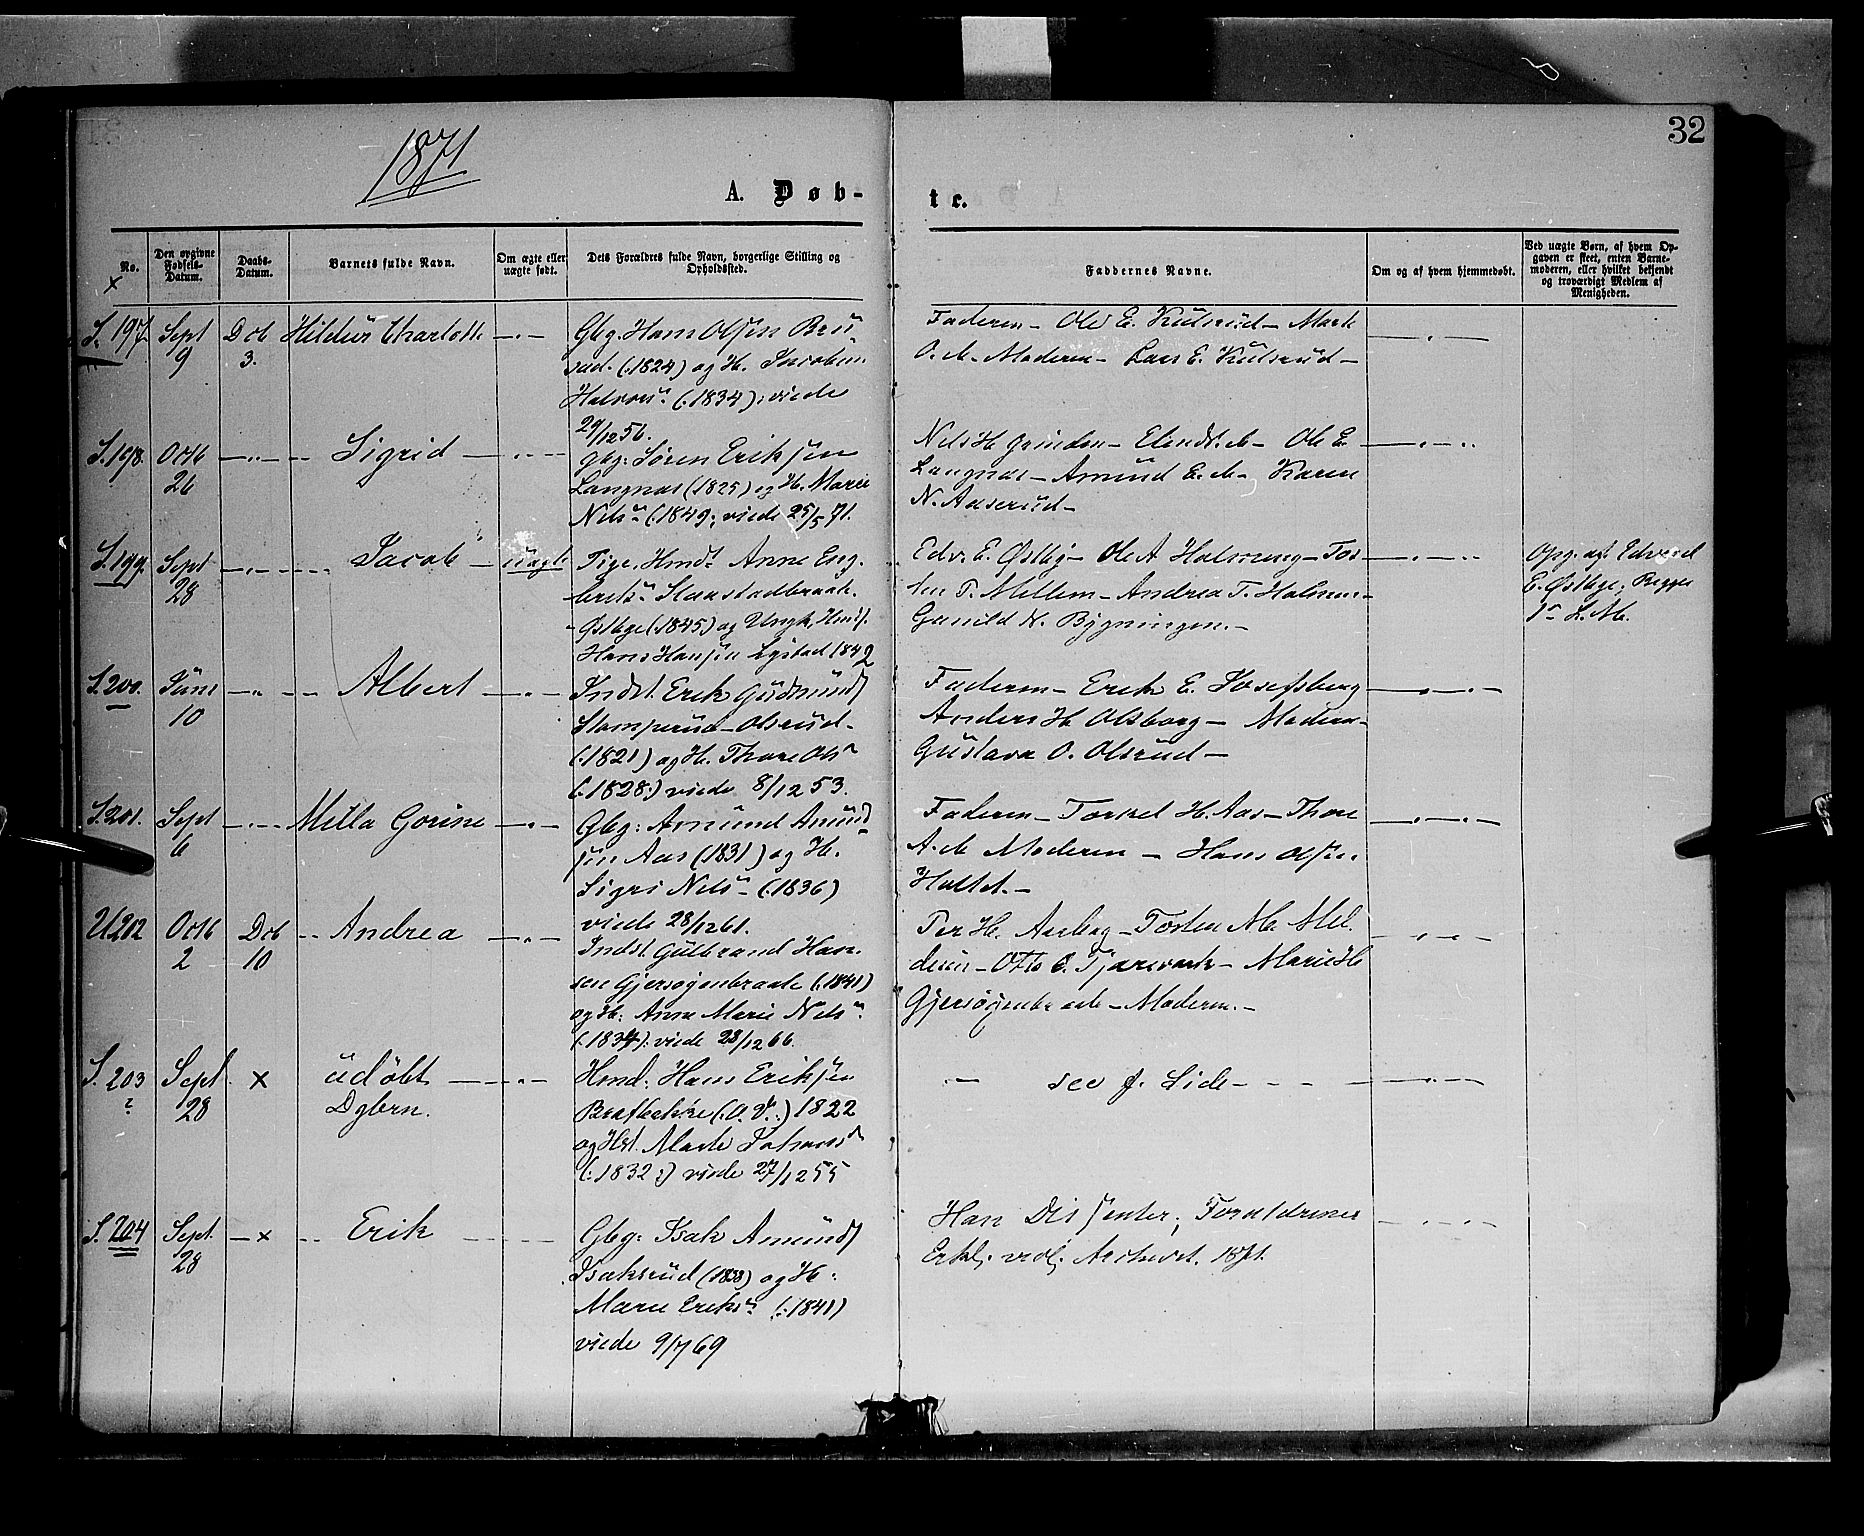 1871
32
A. Døb-
te.
No.
Den opgivne Fødsels-Datum.
Daabs-Datum.
Barnets fulde Navn.
Om ægte eller uægte født.
Dets Forældres fulde Navn, borgerlige Stilling og Opholdssted.
Faddernes Navne.
Om og af hvem hjemmedøbt.
Ved uægte Børn, af hvem Op-
gaven er skeet, enten Barne-
moderen, eller hvilket bekjendt
og troværdigt Medlem af
Menigheden.
S. 197. Sept 9 Dcb 3. Hildur Charlotte
Gbg. Hans Olsen Bru
rud. (:1824) og H. Jacobin.
Halvors. (:1834), viede
29/12 56.
Faderen - Ole E. Kulsrud - Mari
O. M. Moderen - Lars E. Kulsrud -
S. 198. Octb 26 Sigrid
gbg: Søren Eriksen
Langnas (1825) og H. Marie
Nels. (:1849; viede 25/5 71.
Nels H. Grinden - Ole E.
Langnas - Amund E. M - Karen
N. Aaserud -
S. 199. Sept 28 Jacob uægte
Pige. Hmdt. Anne Eng
brets. Haastadbraat.
Østbye (:1845) og Ungk. Hmd.
Hans Hansen Lystad 1842
Edv. E. Østby - Ole A Holmeng - Tor
P. Mellem - Andrea T. Holmen
Gunild N. Bygningen. -
Opg. af Edvard
E. Østbye, Bygge
S. 200. Juni 10 Albert
Indst. Erik Gudmunds
Stomperud - Olsrud -
(:1821) og H. Thore Ols
(:1828:) viede 8/12 53.
Faderen - Erik E. Josefsberg
Anders H. Olsborg - Moderen
Gustava O. Olsrud -
S. 201. Sept 6 Milla Gorine
Gbg: Amund Amund
sen Aas (1831) og H.
Sigri Nels - (:1836)
viede 28/12 61.
Faderen - Torkel H. Aas - Thore
A. M Moderen - Hans Olsen
Holtet. -
U 202 Octb 2 Dcb 10 Andrea
Indst. Gulbrand Han
sen Gjersøgenbraate (:1841)
og H: Anne Marie Nels.
(:1834): viede 28/12 66.
Per H. Aasbog - Torsten M. Mel
- Marie H
Gjersøgenbraate - Moderen. -
S. 203 Sept 28 x udøbt
Dgbrn.
Hmd: Hans Eriksen
1822
og Hst. Marte Johans
(:1832:) viede 27/12 55
see f. Side
S. 204 Sept. 28 x Erik
Gbg: Isak Amunds
Isaksrud (1838) og H:
Marie Eriks. (:1841)
viede 9/7 69
Han Dissenter; Forældrenes
Erkl. vedl. Archivet. 1871.